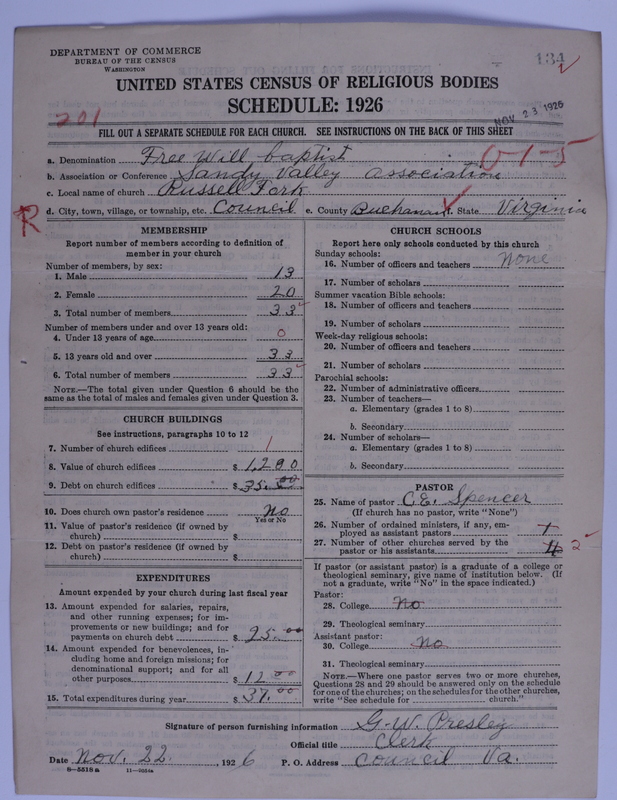 DEPARTMENT OF COMMERCE
BUREAU OF THE CENSUS
WASHINGTON
134
UNITED STATES CENSUS OF RELIGIOUS BODIES
SCHEDULE: 1926
201
NOV 23 1926
FILL OUT A SEPARATE SCHEDULE FOR EACH CHURCH. SEE INSTRUCTIONS ON THE BACK OF THIS SHEET
a. Denomination Free Will baptist 0-1-5
b. Association or Conference Sandy Valley Association
c. Local name of church Russell Fork
R d. City, town, village, or township, etc. Council e. County Buchanan f. State Virginia
MEMBERSHIP
Report number of members according to definition of
member in your church
Number of members, by sex:
1. Male 13
2. Female 20
3. Total number of members 33
Number of members under and over 13 years old:
4. Under 13 years of age 0
5. 13 years old and over 33
6. Total number of members 33
NOTE.—The total given under Question 6 should be the
same as the total of males and females given under Question 3.
CHURCH BUILDINGS
See instructions, paragraphs 10 to 12
7. Number of church edifices 1
8. Value of church edifices $ 1,200
9. Debt on church edifices $ 35.00
10. Does church own pastor's residence No
Yes or No
11. Value of pastor's residence (if owned by
church) $
12. Debt on pastor's residence (if owned by
church) $
EXPENDITURES
Amount expended by your church during last fiscal year
13. Amount expended for salaries, repairs,
and other running expenses; for im-
provements or new buildings; and for
payments on church debt $ 25.00
14. Amount expended for benevolences, in-
cluding home and foreign missions; for
denominational support; and for all
other purposes $ 12.00
15. Total expenditures during year $ 37.00
CHURCH SCHOOLS
Report here only schools conducted by this church
Sunday schools:
16. Number of officers and teachers None
17. Number of scholars
Summer vacation Bible schools:
18. Number of officers and teachers
19. Number of scholars
Week-day religious schools:
20. Number of officers and teachers
21. Number of scholars
Parochial schools:
22. Number of administrative officers
23. Number of teachers—
a. Elementary (grades 1 to 8)
b. Secondary
24. Number of scholars—
a. Elementary (grades 1 to 8)
b. Secondary
PASTOR
25. Name of pastor C.E. Spencer
(If church has no pastor, write "None")
26. Number of ordained ministers, if any, em-
ployed as assistant pastors 1
27. Number of other churches served by the
pastor or his assistants 4 2
If pastor (or assistant pastor) is a graduate of a college or
theological seminary, give name of institution below. (If
not a graduate, write "No" in the space indicated.)
Pastor:
28. College No
29. Theological seminary
Assistant pastor:
30. College No
31. Theological seminary
NOTE.—Where one pastor serves two or more churches,
Questions 28 and 29 should be answered only on the schedule
for one of the churches; on the schedules for the other churches,
write "See schedule for church."
Signature of person furnishing information G. W. Presley
Official title Clerk
Date Nov. 22, 1926 P. O. Address Council Va.
8—5518 a